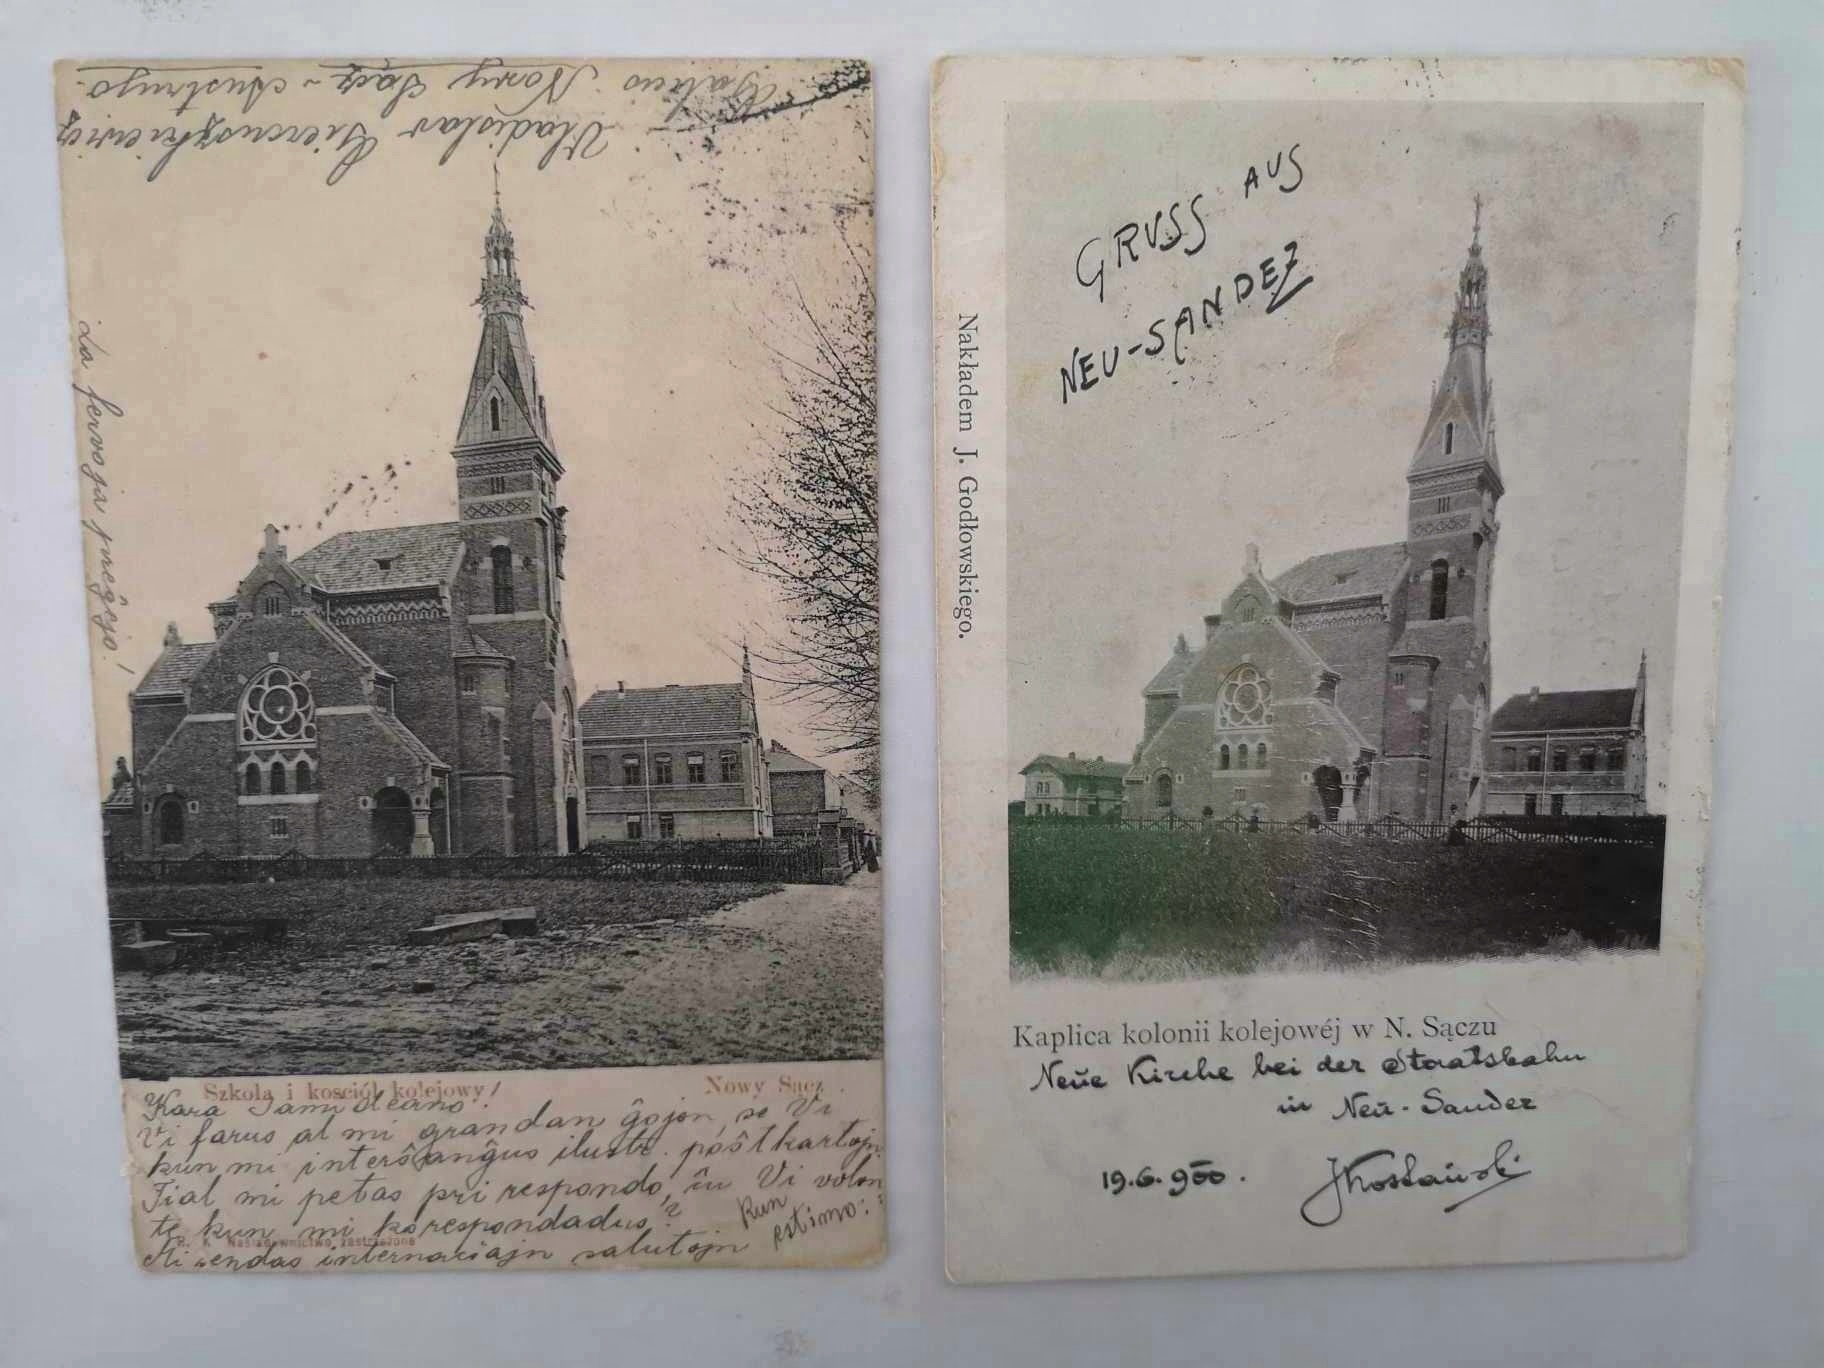 Vladislav
Galicio. Nowy Sącz - Austrujo.
La fervoja preĝejo!
Szkoła i kosciół kolejowy!
Nowy Sącz.
Kara Samideano!
Vi farus al mi grandan ĝojon, se Vi
kun mi interŝanĝus ilustr. poŝtkartojn.
Tial mi petas pri respondo, ĉu Vi volon
te kun mi korespondadus?
Mi sendas internaciajn salutojn
Kun
estimo:
Naśladownictwo zastrzeżone
GRUSS AUS
NEU-SANDEZ
Nakładem J. Godłowskiego.
Kaplica kolonii kolejowéj w N. Sączu
Neue Kirche bei der Staatsbahn
in Neu-Sandez
19.6.900.